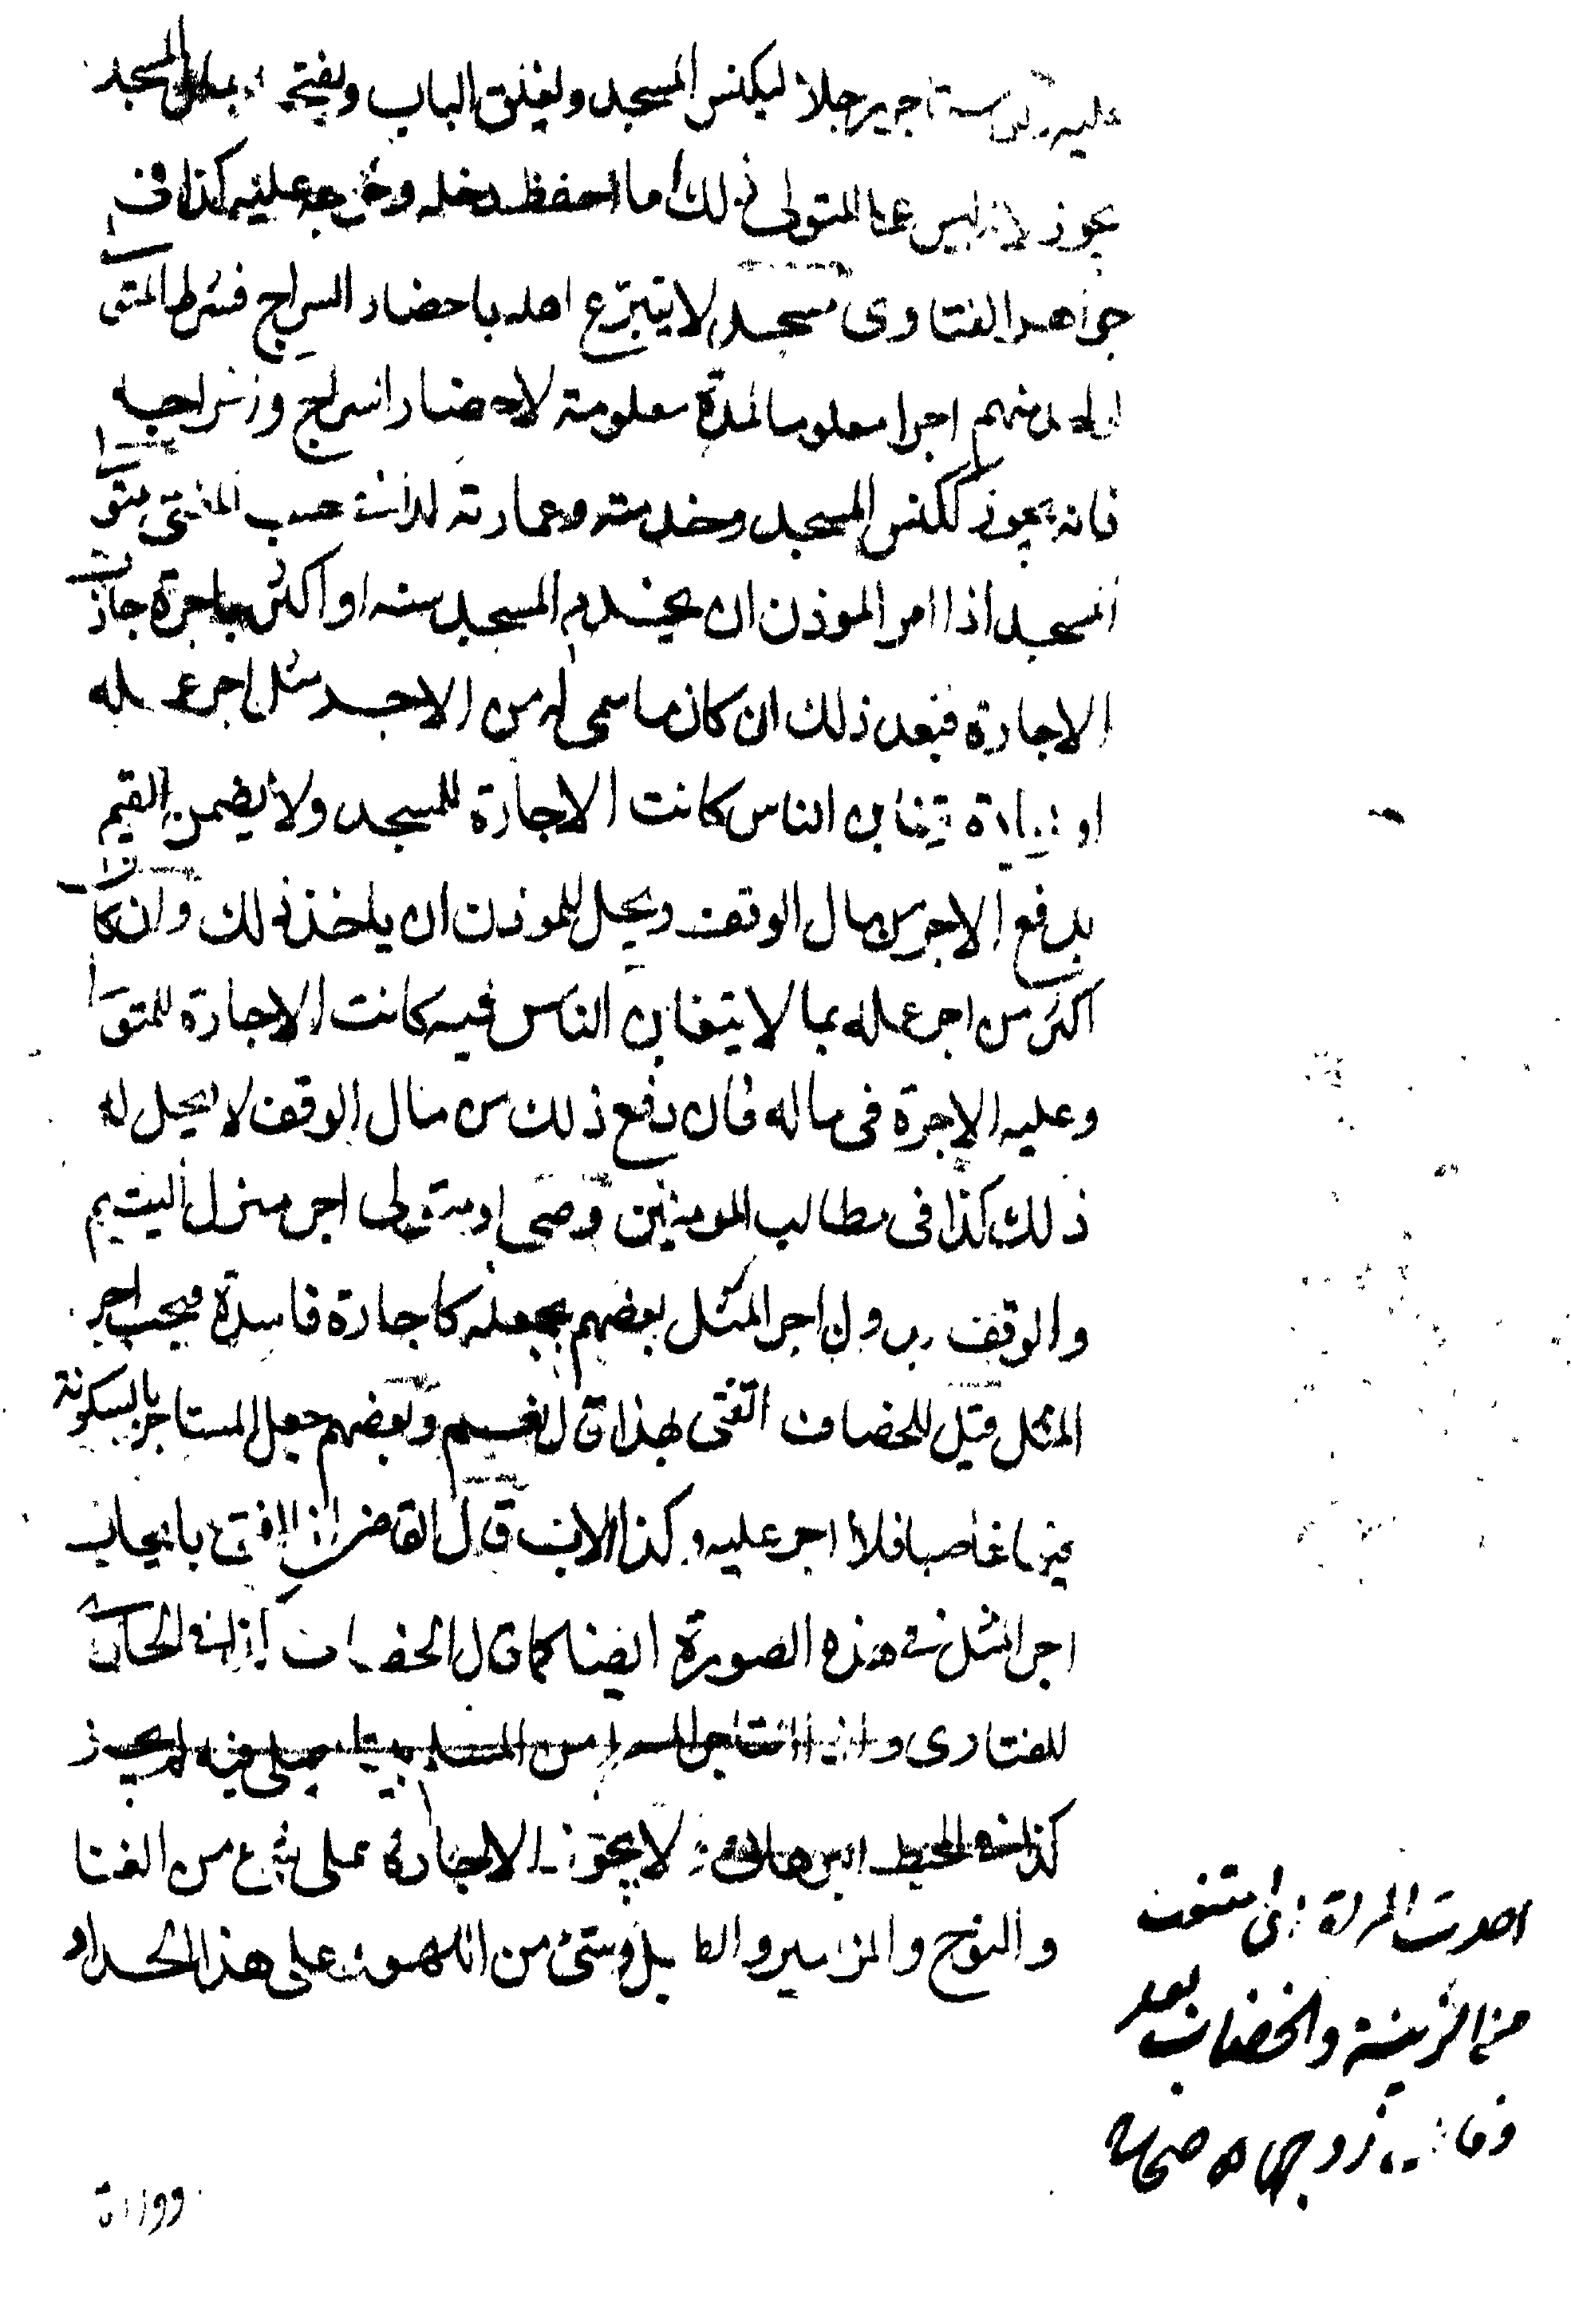 عليه ... سنة اجير رجلا ليكنس المسجد ويغلق الباب ويفتحه بمال المسجد
يجوز لانه ليس على المتولى ذلك اما حفظ دخله وخرجه عليه كذا فى
جواهر الفتاوى مسجد لا يتبرع اهله باحضار السراج فشرط المتولى
لواحد منهم اجرا معلوما لمدة معلومة لاحضار السراج واسراجه
فانه يجوز ككنس المسجد وخدمته وعمارته ... متولى
المسجد اذا امر الموذن ان يخدم المسجد سنه او اكثر باجرة جازت
الاجارة فبعد ذلك ان كان ما سمى له من الاجر مثل اجر عمله
او زيادة يتغابن الناس كانت الاجارة للمسجد ولا يضمن القيم
بدفع الاجر من مال الوقف ويحل للموذن ان ياخذ ذلك وان كان
اكثر من اجر عمله بما لا يتغابن الناس فيه كانت الاجارة للمتولى
وعليه الاجرة فى ماله فان دفع ذلك من مال الوقف لا يحل له
ذلك كذا فى مطالب المومنين وصى او متولى اجر منزل اليتيم
والوقف بدون اجر المثل بعضهم يجعله كاجارة فاسدة فيجب اجر
المثل قيل للخصاف اتفتى بهذا قال نعم وبعضهم جعل المستاجر بالسكونة
فيها غاصبا فلا اجر عليه وكذا الاب قال القاضى انا افتى بايجاب
اجر المثل فى هذه الصورة ايضا كما قال الخصاف
للفتاوى واذا استاجر المسلم من المسلم بيتا يصلى فيه لم يجز
كذا فى المحيط لا يجوز الاجارة على شئ من الغنا
والنوح والمزامير والطبل وشئ من اللهو وعلى هذا الحداء
احدت المراة اى امتنعت
من الزينة والخضاب بعد
وفات زوجها صحاح